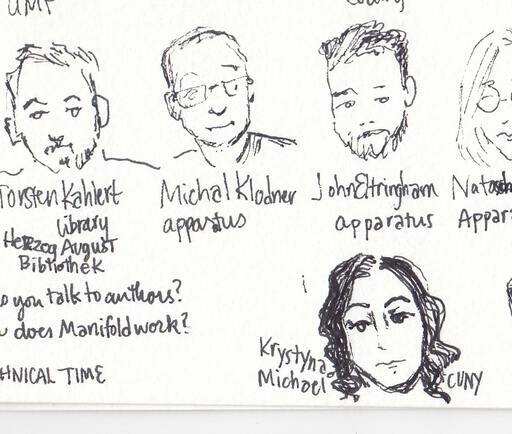 Torsten Kahlert
Library
Herzog August
Bibliothek
Michal Klodner
apparatus
John Eltringham
apparatus
Appar
o you talk to authors?
w does Manifold work?
HNICAL TIME
Krystyna
Michael
CUNY